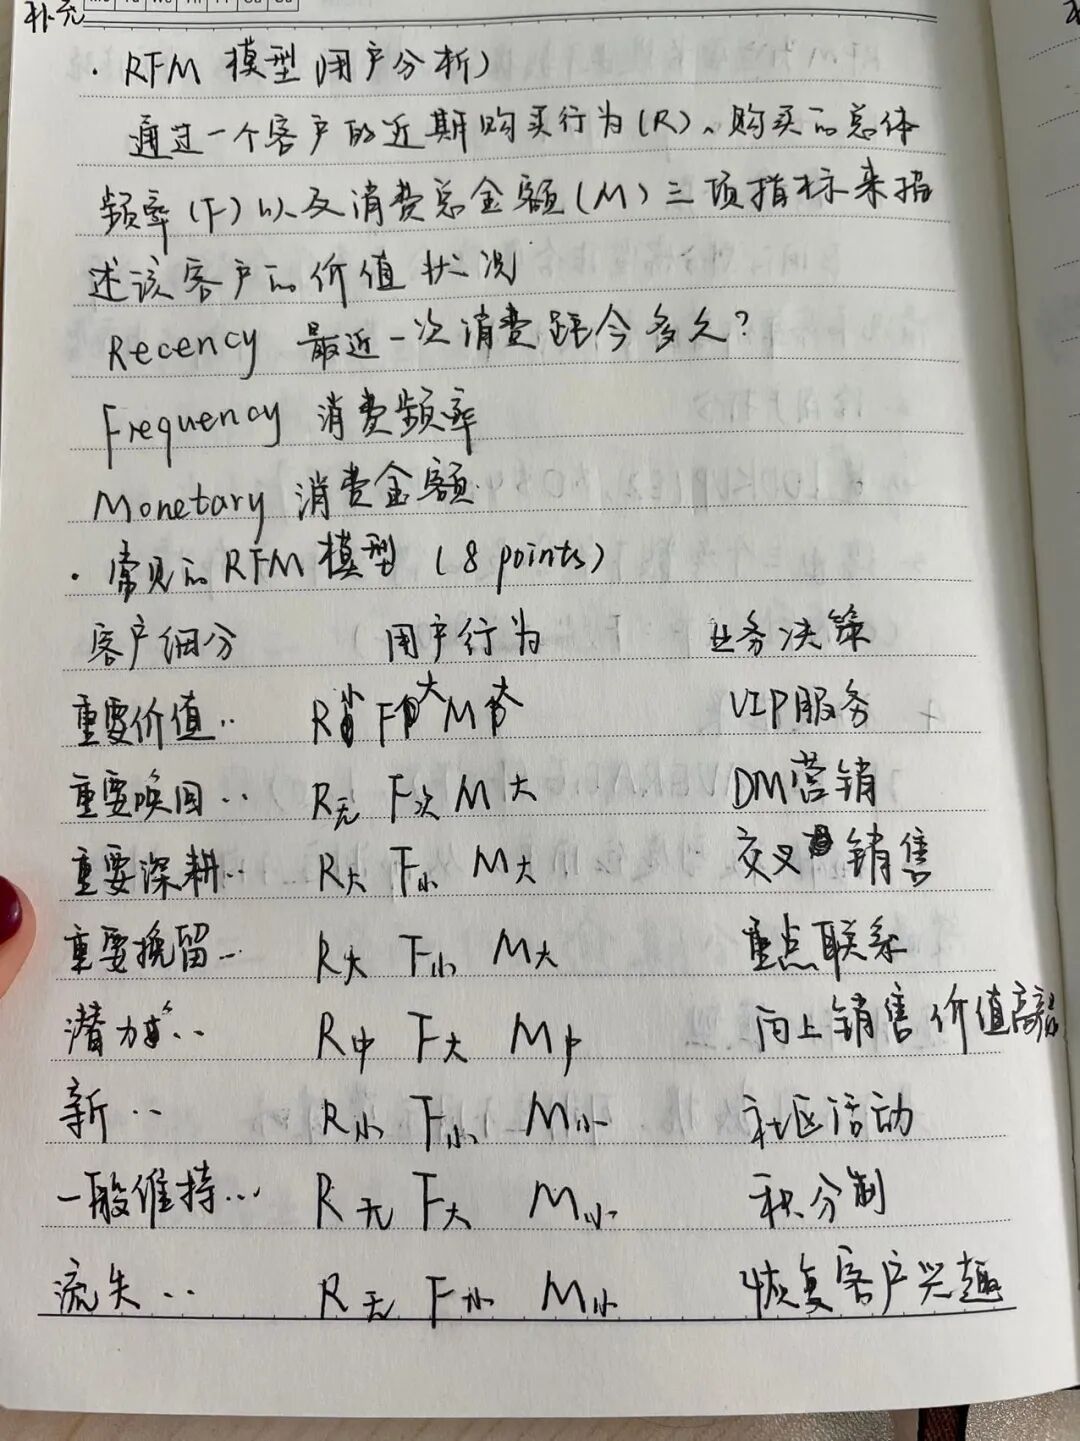 补充
· RFM 模型(用户分析)
通过一个客户的近期购买行为(R)、购买的总体
频率(F)以及消费总金额(M)三项指标来描
述该客户的价值状况
Recency 最近一次消费距今多久?
Frequency 消费频率
Monetary 消费金额
· 常见的RFM模型 (8 points)
客户细分 用户行为 业务决策
重要价值.. R小 F大 M大 VIP服务
重要唤回.. R无 F次 M大 DM营销
重要深耕.. R大 F小 M大 交叉销售
重要挽留.. R大 F小 M大 重点联系
潜力.. R中 F大 M中 向上销售 价值高
新.. R小 F小 M小 社区活动
一般维持... R无 F大 M小 积分制
流失.. R无 F小 M小 恢复客户兴趣